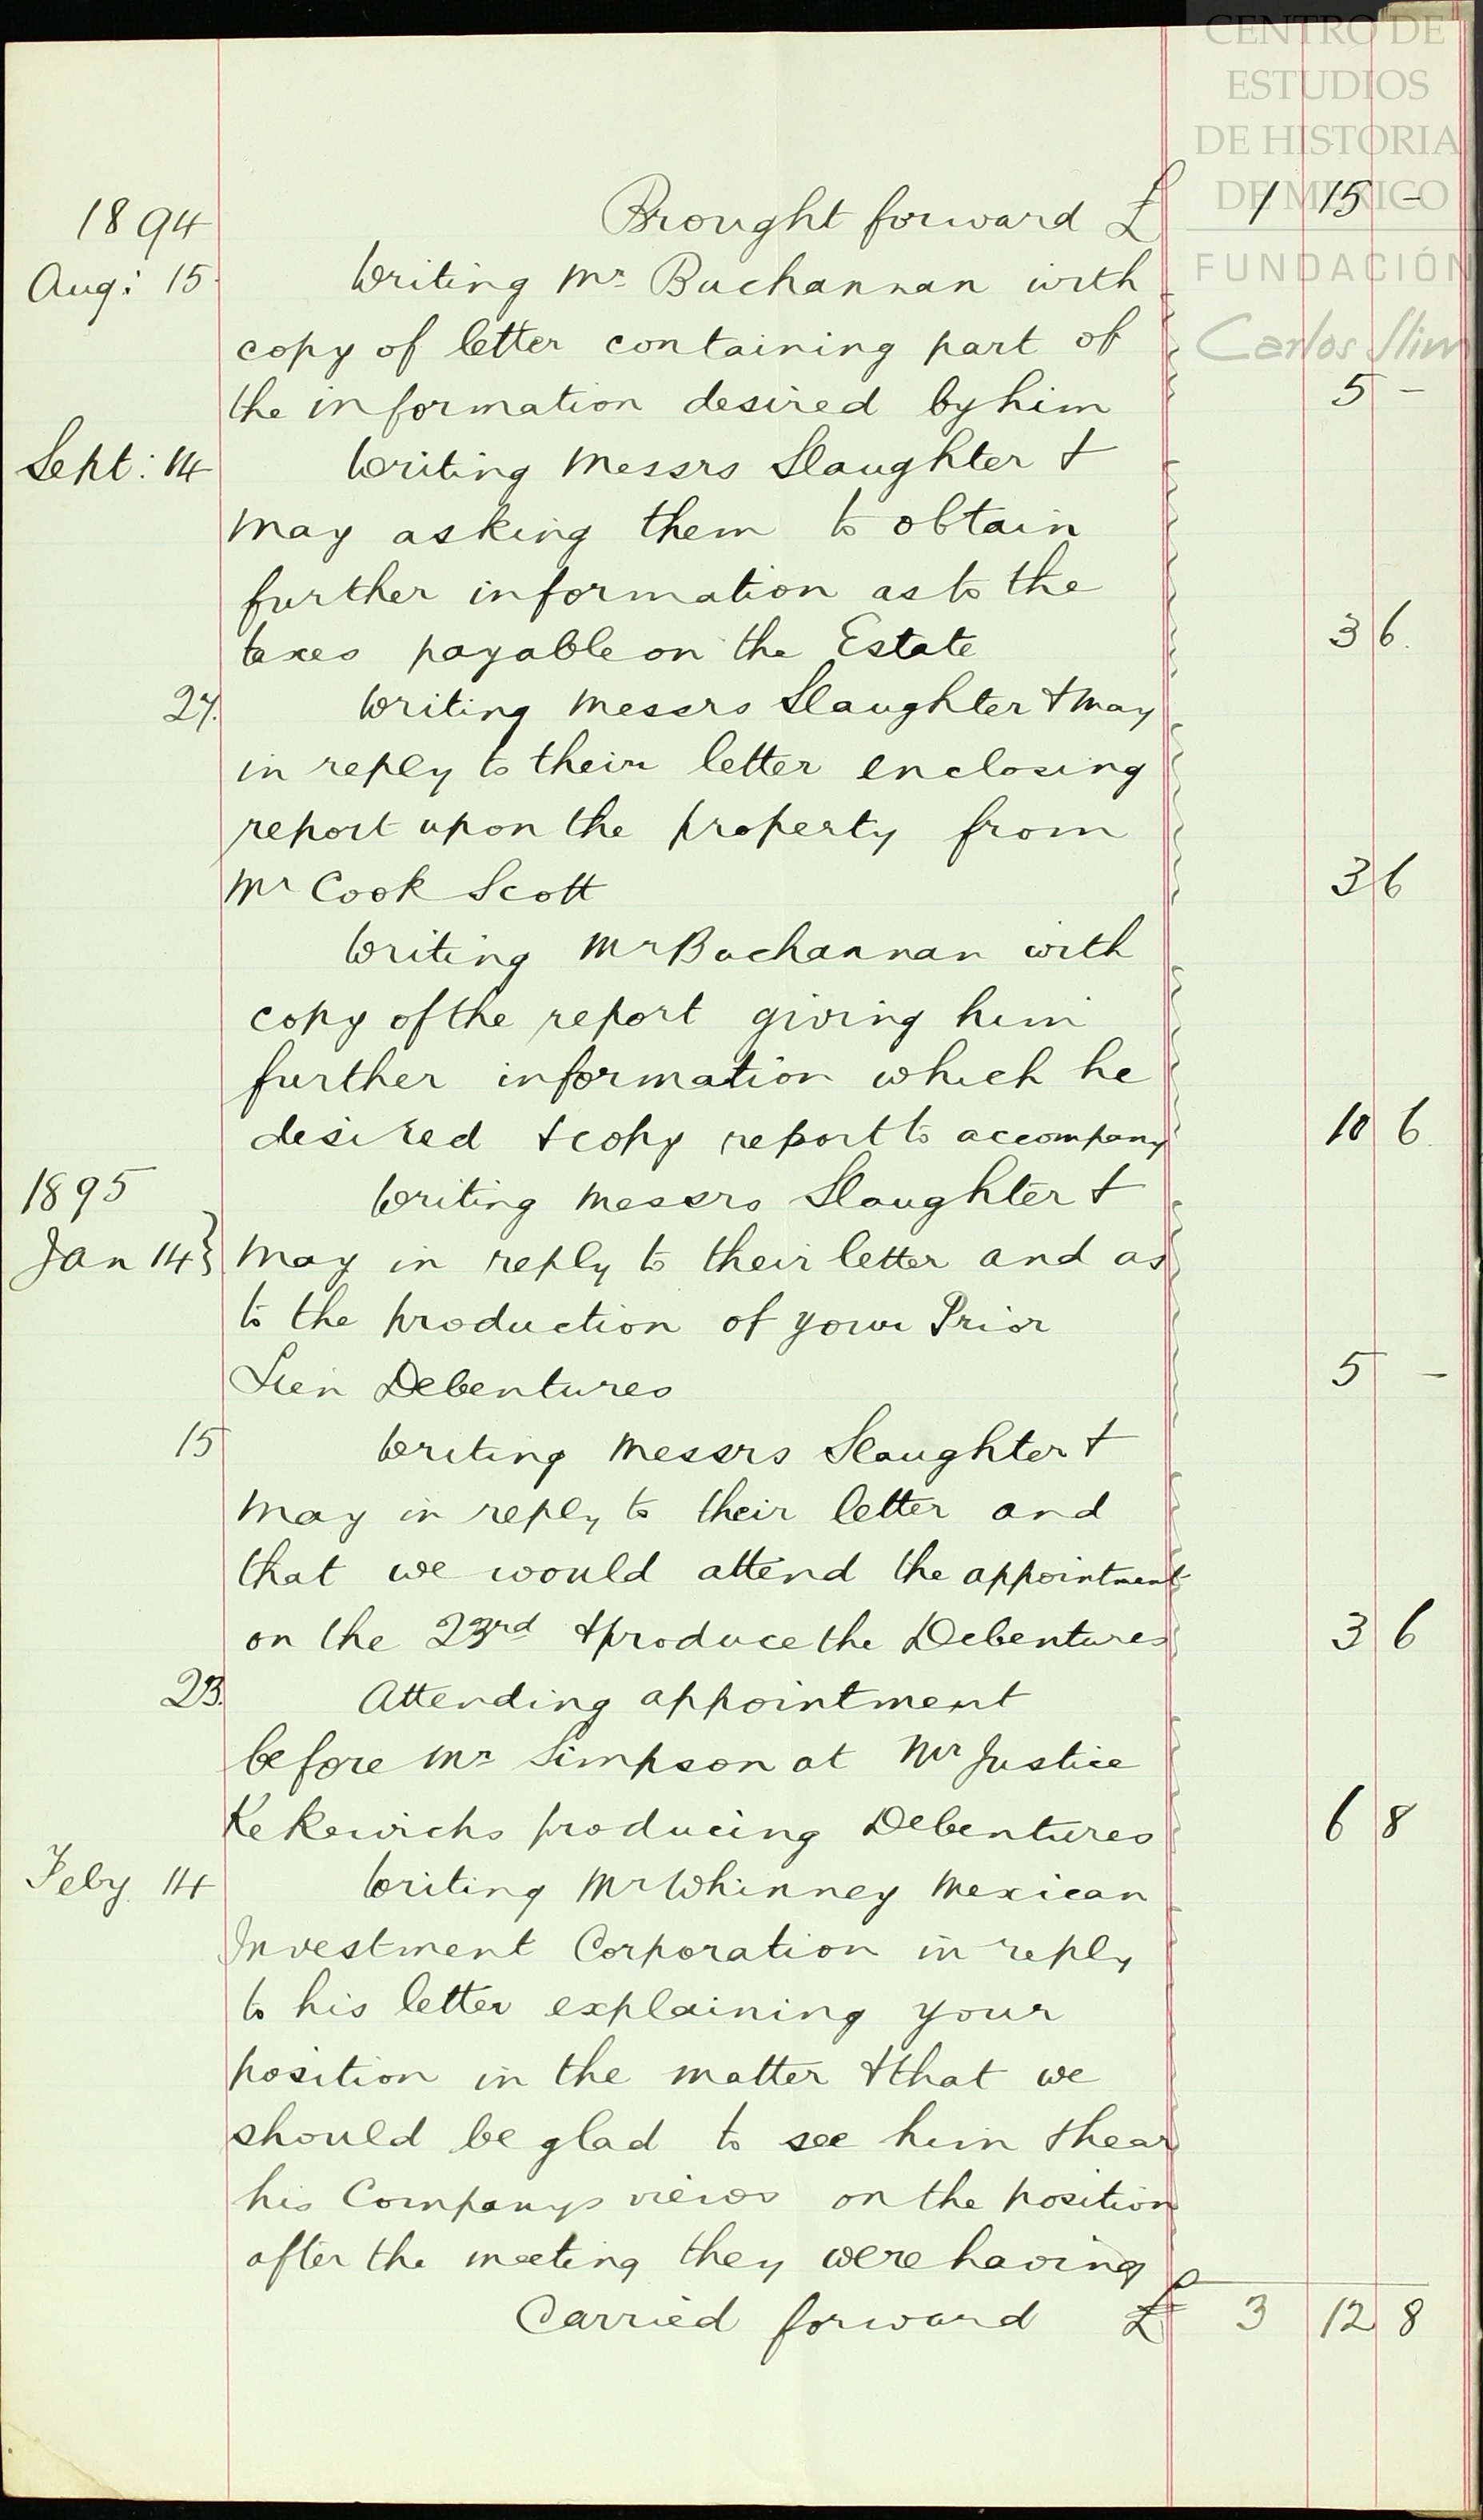 CENTRO DE
ESTUDIOS
DE HISTORIA
DE MÉXICO
FUNDACIÓN
Carlos Slim
1894 Brought forward £ 1 15 -
Aug: 15 Writing Mr Buchannan with
copy of letter containing part of
the information desired by him 5 -
Sept: 14 Writing Messrs Slaughter &
May asking them to obtain
further information as to the
taxes payable on the Estate 3 6.
27. Writing Messrs Slaughter & May
in reply to their letter enclosing
report upon the property from
Mr Cook Scott 3 6
Writing Mr Buchannan with
copy of the report giving him
further information which he
desired & copy report to accompany 10 6.
1895 Writing Messrs Slaughter &
Jan 14} May in reply to their letter and as
to the production of your Prior
Lien Debentures 5 -
15 Writing Messrs Slaughter &
May in reply to their letter and
that we would attend the appointment
on the 23rd & produce the Debentures 3 6
23. Attending appointment
before Mr Simpson at Mr Justice
Kekewichs producing Debentures 6 8
Feby 14 Writing Mr Whinney Mexican
Investment Corporation in reply
to his letter explaining your
position in the matter & that we
should be glad to see him & hear
his Companys views on the position
after the meeting they were having
Carried forward £ 3 12 8